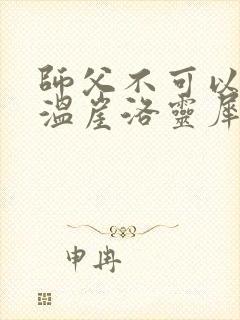 師父不可以
溫崖洛靈犀
申冉